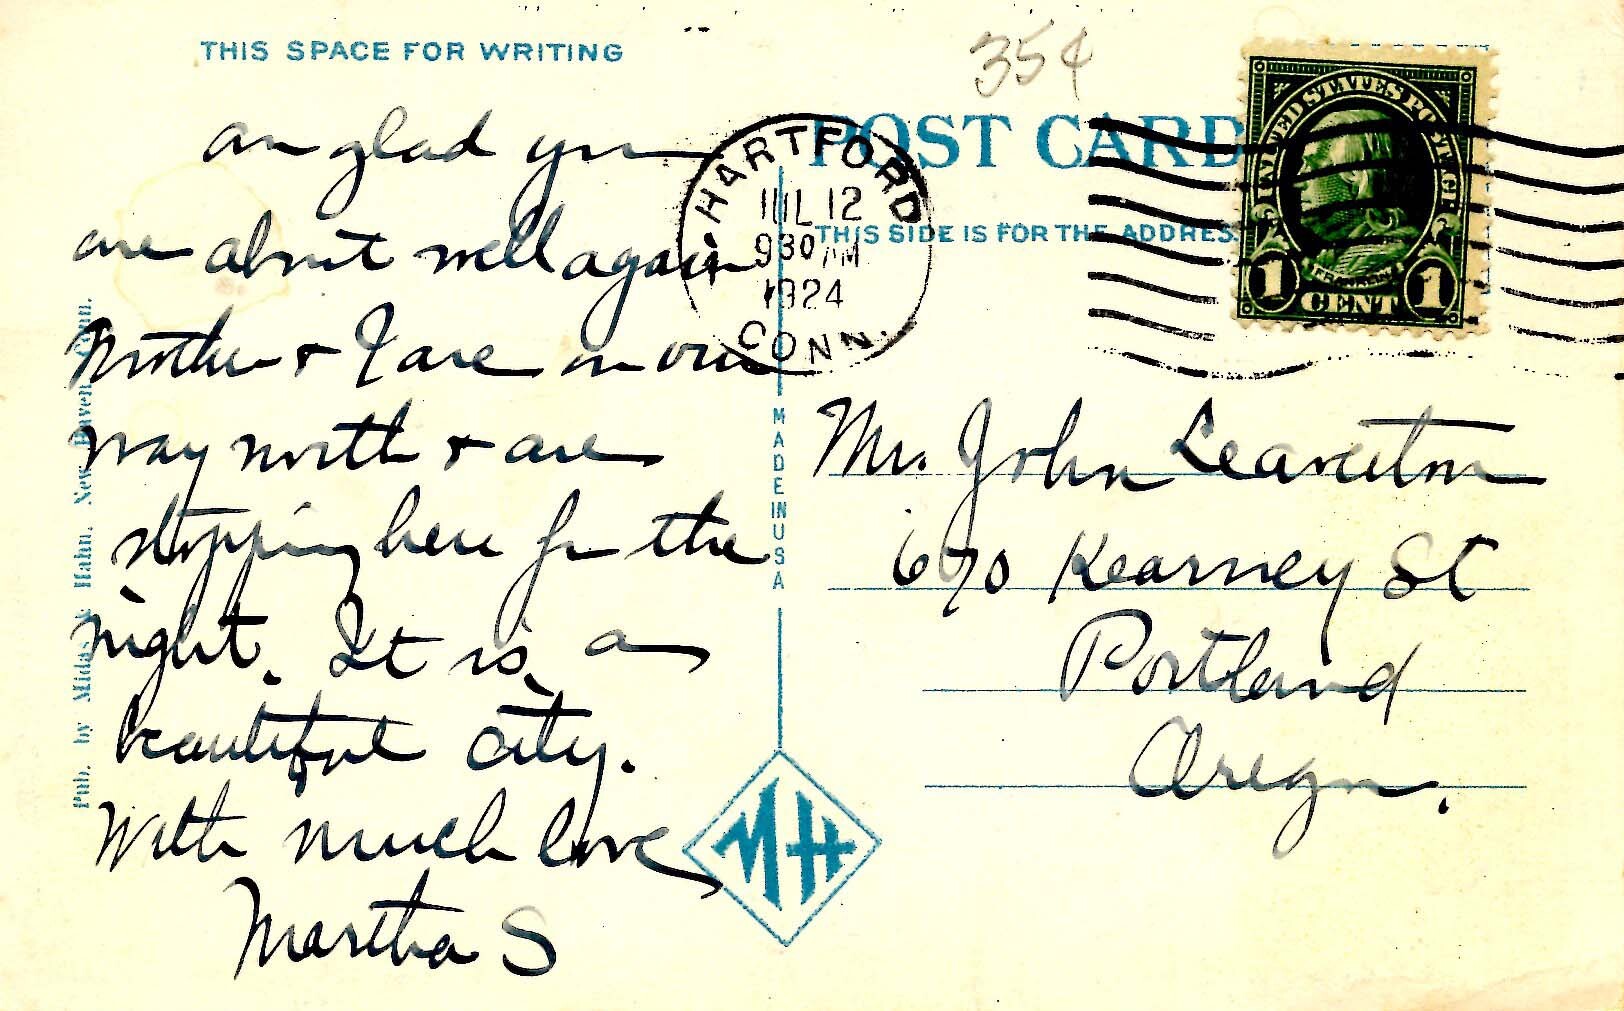 THIS SPACE FOR WRITING
am glad you
are about well again
Mother & I are on our
way north & are
stopping here for the
night. It is a
beautiful city.
With much love
Martha S
Pub. by Midas & Hahn. New Haven Conn.
35¢
POST CARD
THIS SIDE IS FOR THE ADDRESS
HARTFORD
JUL 12
930 AM
1924
CONN.
UNITED STATES POSTAGE
FRANKLIN
1 CENT 1
MADE IN USA
Mr. John Leaverton
670 Kearney St
Portland
Oregon.
MH